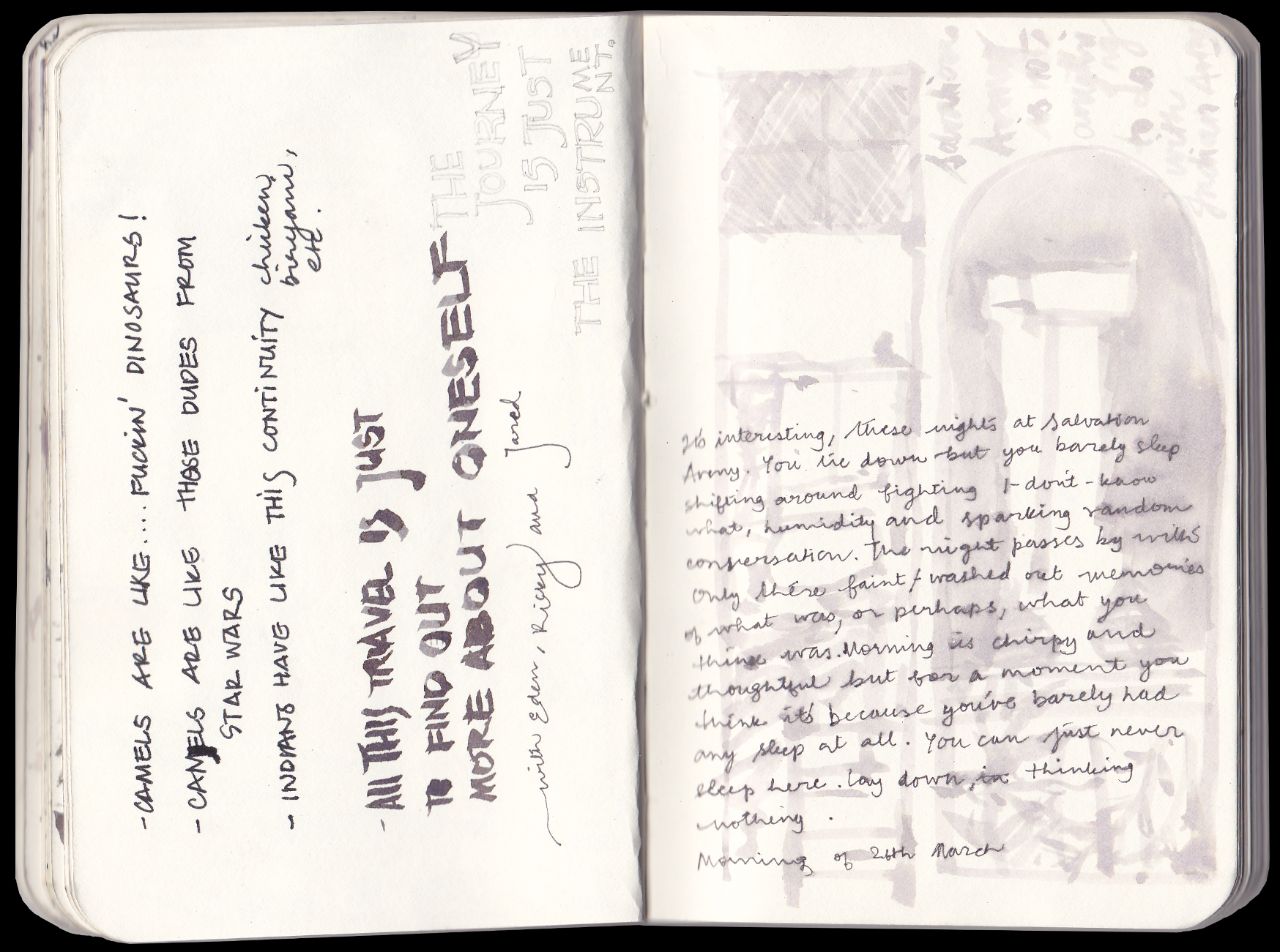 - CAMELS ARE LIKE.... FUCKIN' DINOSAURS!
- CAMELS ARE LIKE THOSE DUDES FROM
STAR WARS
- INDIANS HAVE LIKE THIS CONTINUITY chicken,
biryani,
etc.
- All THIS TRAVEL IS JUST
TO FIND OUT
MORE ABOUT ONESELF
THE
JOURNEY
IS JUST
THE INSTRUME
NT.
with Eden, Ricky and Jared
Its interesting, these nights at Salvation
Army. You lie down but you barely sleep
shifting around fighting I-don't-know
what, humidity and sparking random
conversation. The night passes by with
only there faint/washed out memories
of what was, or perhaps, what you
think was. Morning is chirpy and
thoughtful but for a moment you
think it's because you've barely had
any sleep at all. You can just never
sleep here. lay down, in thinking
nothing.
Morning of 26th March
Salvation
Army
is not
to do